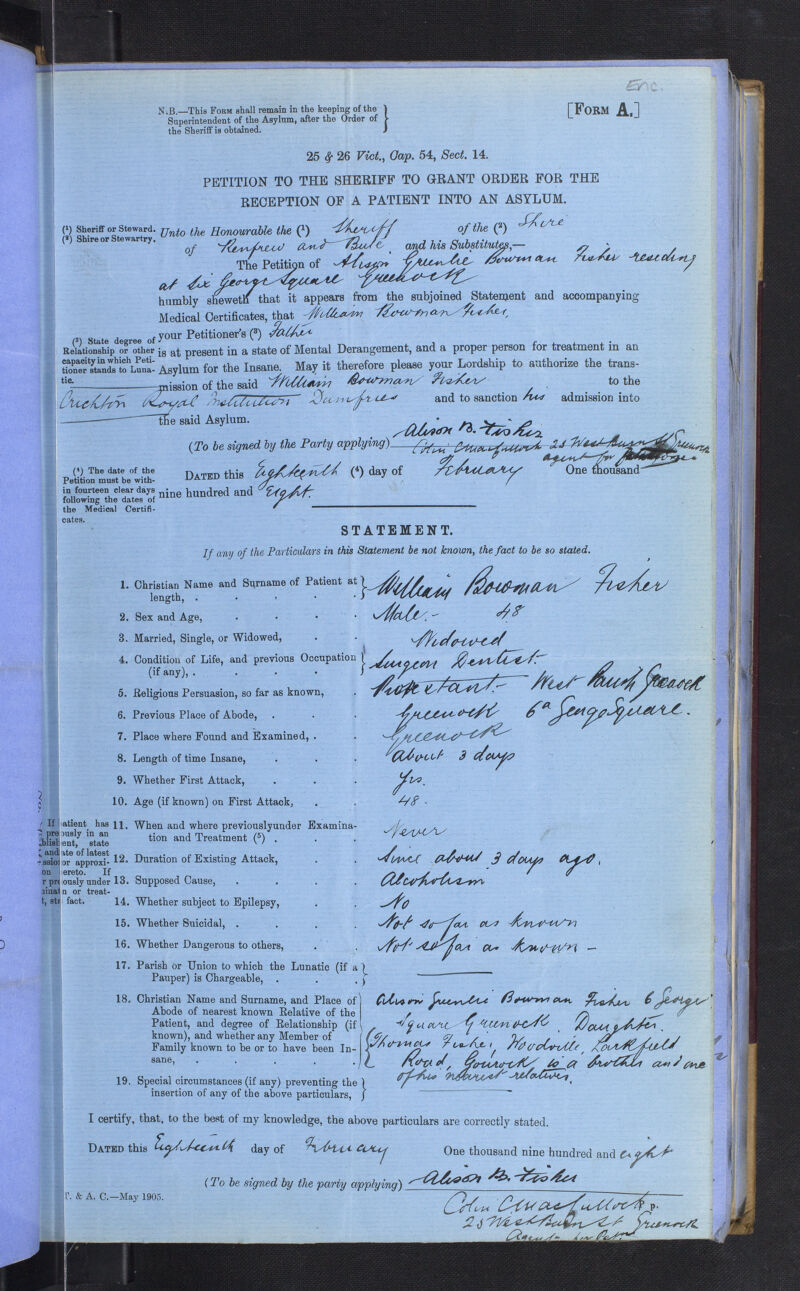 Enc.
N.B.—This Form shall remain in the keeping of the
Superintendent of the Asylum, after the Order of
the Sheriff is obtained.
[Form A.]
25 & 26 Vict., Cap. 54, Sect. 14.
PETITION TO THE SHERIFF TO GRANT ORDER FOR THE
RECEPTION OF A PATIENT INTO AN ASYLUM.
(1) Sheriff or Steward.
(2) Shire or Stewartry.
Unto the Honourable the (1) Sheriff of the (2) Shire
of Renfrew and Bute and his Substitutes,—
The Petition of Alison Greenlie Bowman Fisher residing
at Six George Square Greenock
humbly sheweth that it appears from the subjoined Statement and accompanying
Medical Certificates, that William Bowman Fisher,
(3) State degree of
Relationship or other
capacity in which Peti-
tioner stands to Luna-
tic.
your Petitioner's (3) Father
is at present in a state of Mental Derangement, and a proper person for treatment in an
Asylum for the Insane. May it therefore please your Lordship to authorize the trans-
mission of the said William Bowman Fisher to the
Crichton Royal Institution Dumfries and to sanction his admission into
the said Asylum.
Alison B. Fisher
(To be signed by the Party applying) Colin 25 West Burn St Greenock
agent for
(4) The date of the
Petition must be with-
in fourteen clear days
following the dates of
the Medical Certifi-
cates.
Dated this Eighteenth (4) day of February One thousand
nine hundred and Eight.
STATEMENT.
If any of the Particulars in this Statement be not known, the fact to be so stated.
1. Christian Name and Surname of Patient at
length, . William Bowman Fisher
2. Sex and Age, Male.- 48
3. Married, Single, or Widowed, Widowed
4. Condition of Life, and previous Occupation
(if any), . Surgeon Dentist.
5. Religious Persuasion, so far as known, Protestant.- West Parish Greenock
6. Previous Place of Abode, . Greenock 6a George Square.
7. Place where Found and Examined, . Greenock
8. Length of time Insane, About 3 days
9. Whether First Attack, Yes.
10. Age (if known) on First Attack, 48.
If patient has
previously in an
ent, state
and date of latest
or approxi-
ereto. If
previously under
n or treat-
fact.
11. When and where previouslyunder Examina-
tion and Treatment (5) . Never
12. Duration of Existing Attack, Since about 3 days ago.
13. Supposed Cause, Alcoholism
14. Whether subject to Epilepsy, No
15. Whether Suicidal, . Not so far as known
16. Whether Dangerous to others, Not so far as known -
17. Parish or Union to which the Lunatic (if a
Pauper) is Chargeable, .
18. Christian Name and Surname, and Place of
Abode of nearest known Relative of the
Patient, and degree of Relationship (if
known), and whether any Member of
Family known to be or to have been In-
sane,
Alison Greenlie Bowman Fisher 6 George
Square Greenock. Daughter.
Thomas Fisher, Woodville, Larkfield
Road, Gourock is a brother and one
of his nearest relatives.
19. Special circumstances (if any) preventing the
insertion of any of the above particulars,
I certify, that, to the best of my knowledge, the above particulars are correctly stated.
Dated this Eighteenth day of February One thousand nine hundred and eight
(To be signed by the party applying) Alison B. Fisher
Colin
25 West Burn St Greenock
Agent for
P. & A. C.—May 1905.